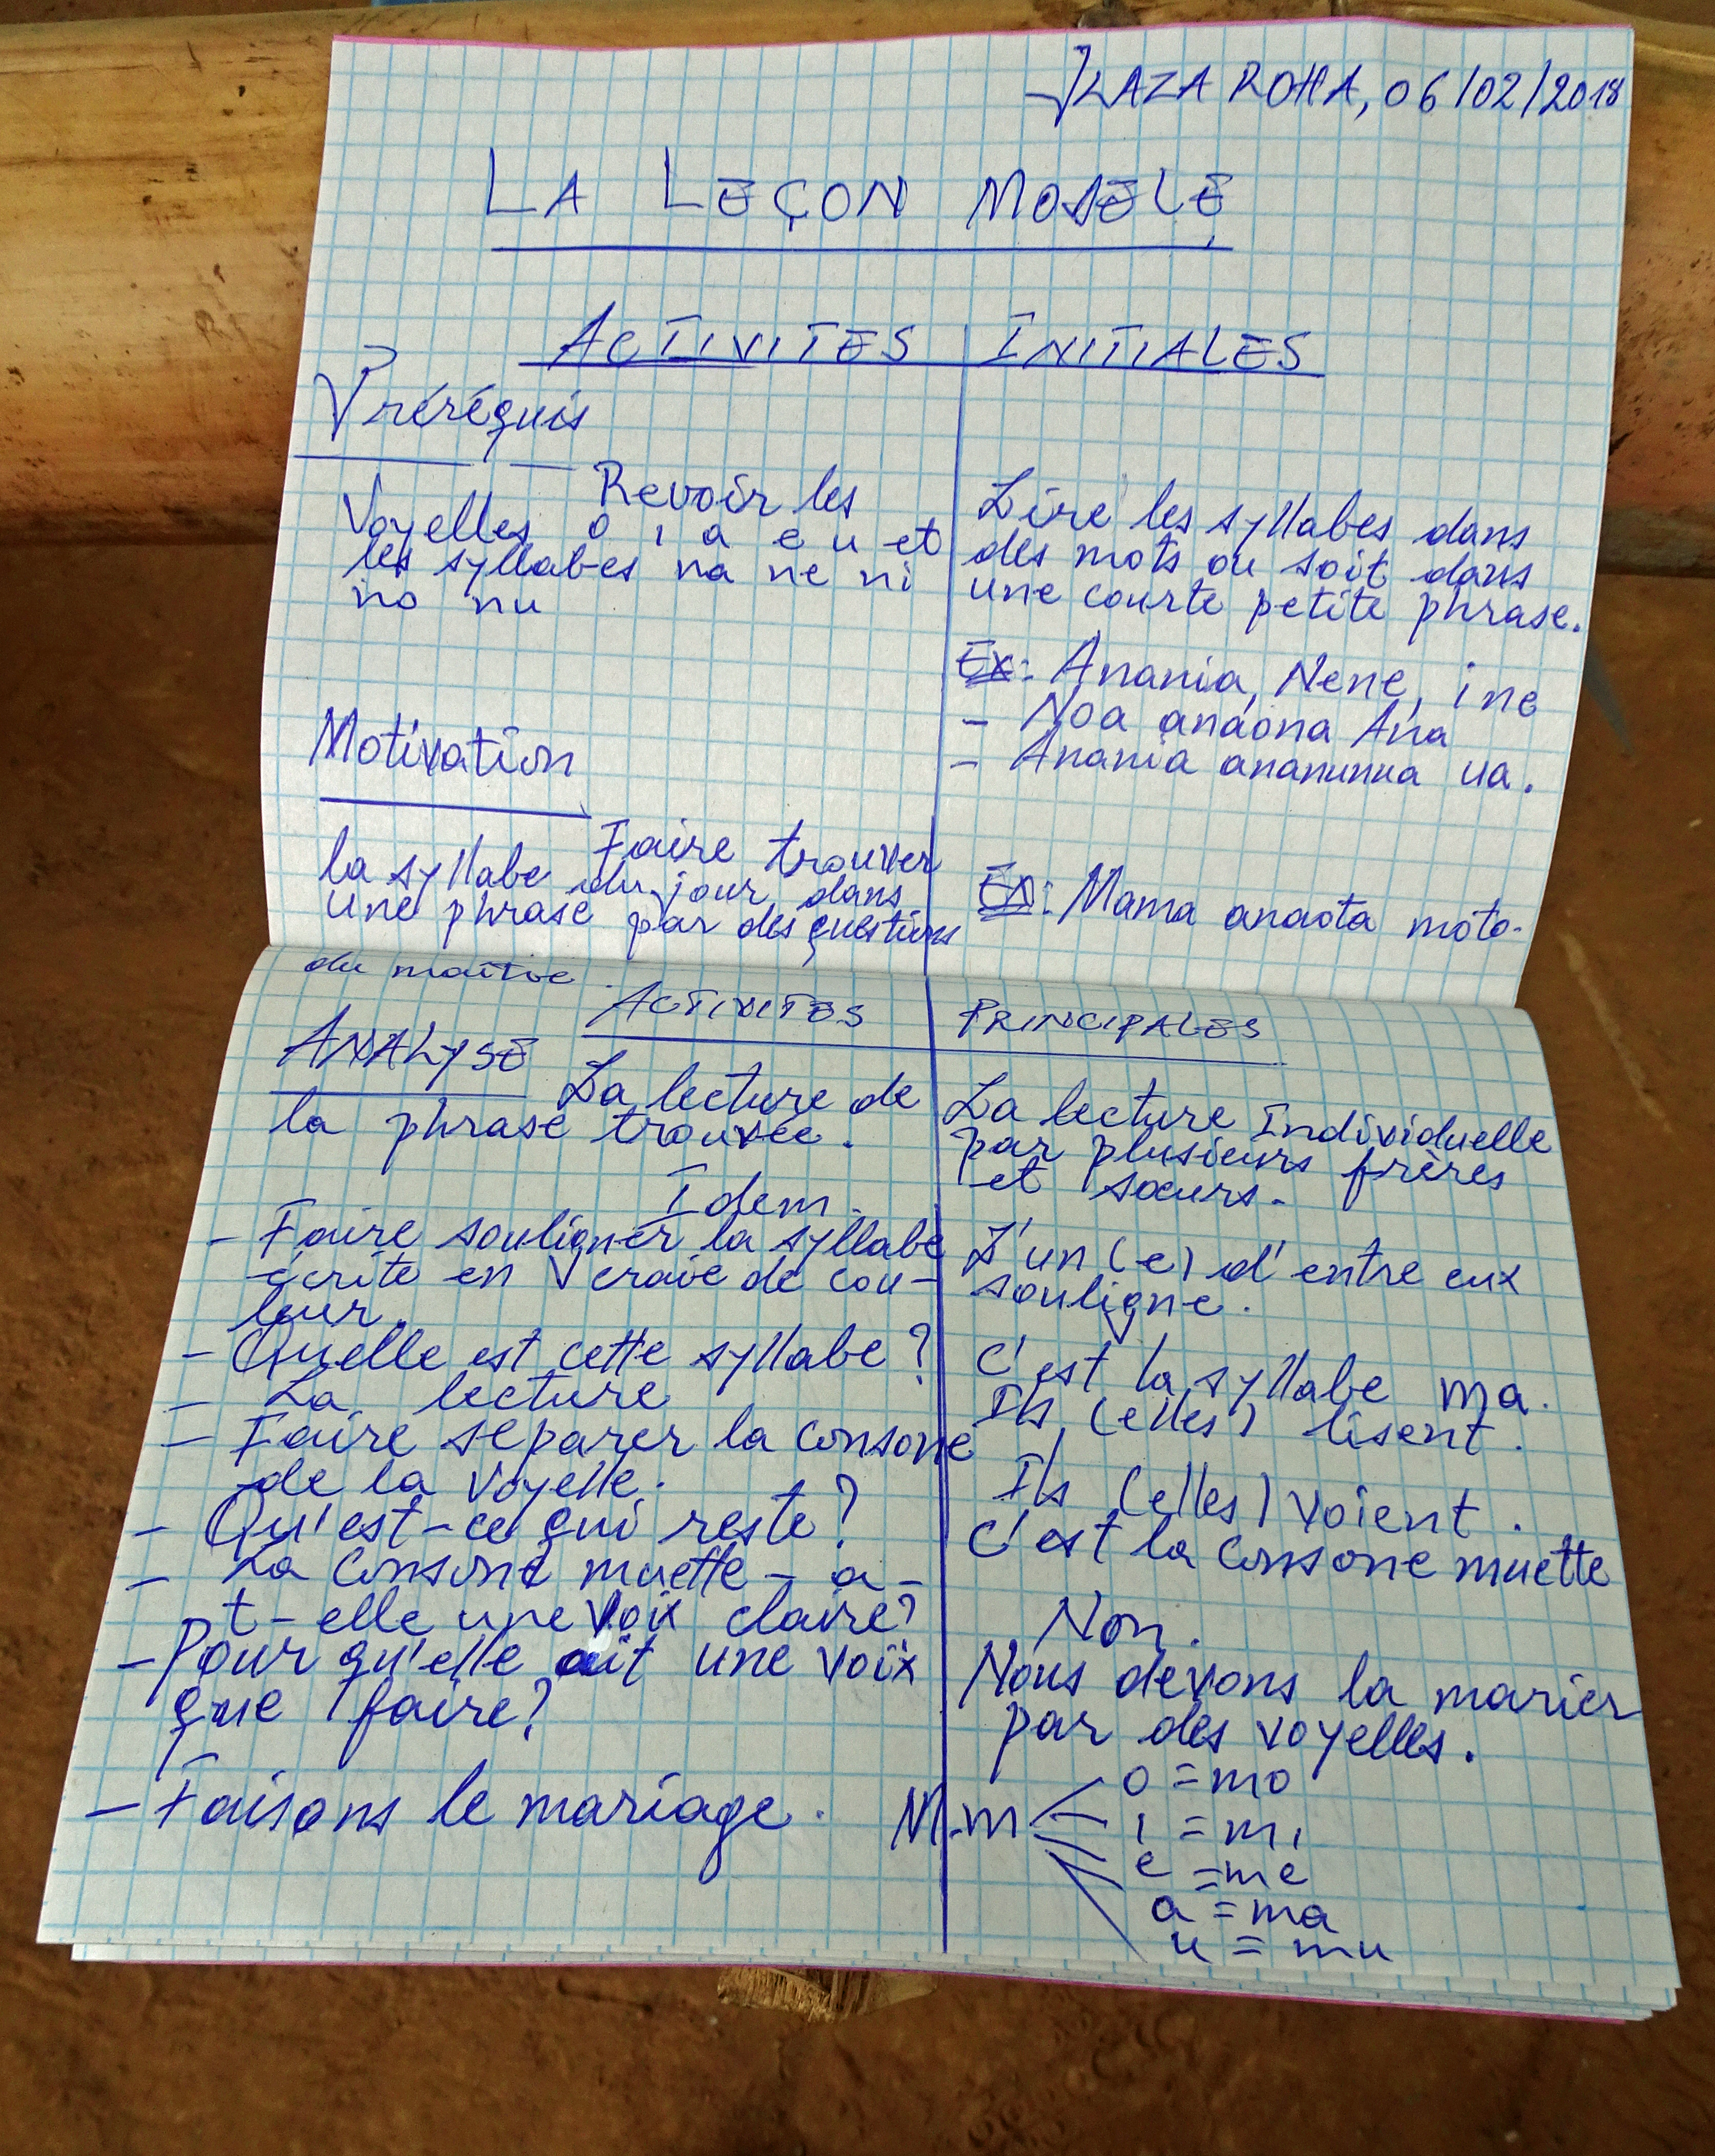 LAZA ROHA, 06/02/2018
LA LEÇON MODELE
ACTIVITES INITIALES
Préréquis
Revoir les
Voyelles o i a e u et
les syllabes na ne ni
no nu
Lire les syllabes dans
des mots ou soit dans
une courte petite phrase.
Ex: Anania, Nene, ine
- Noa anaona Ana
- Anania ananunua ua.
Motivation
Faire trouver
la syllabe du jour dans
une phrase par des questions
du maître.
Ex: Mama anaota moto.
ACTIVITES PRINCIPALES
ANALYSE La lecture de
la phrase trouvée.
Idem.
La lecture Individuelle
par plusieurs frères
et sœurs.
- Faire souligner la syllabe
écrite en craie de cou-
leur.
L'un (e) d'entre eux
souligne.
- Quelle est cette syllabe?
C'est la syllabe ma.
- La lecture
Ils (elles) lisent.
- Faire separer la consone
de la voyelle.
Ils (elles) voient.
- Qu'est-ce qui reste?
C'est la consone muette
- La consone muette - a -
t-elle une voix claire?
Non.
- Pour qu'elle ait une voix
que faire?
Nous devons la marier
par des voyelles.
- Faisons le mariage.
M.m
o = mo
i = mi
e = me
a = ma
u = mu